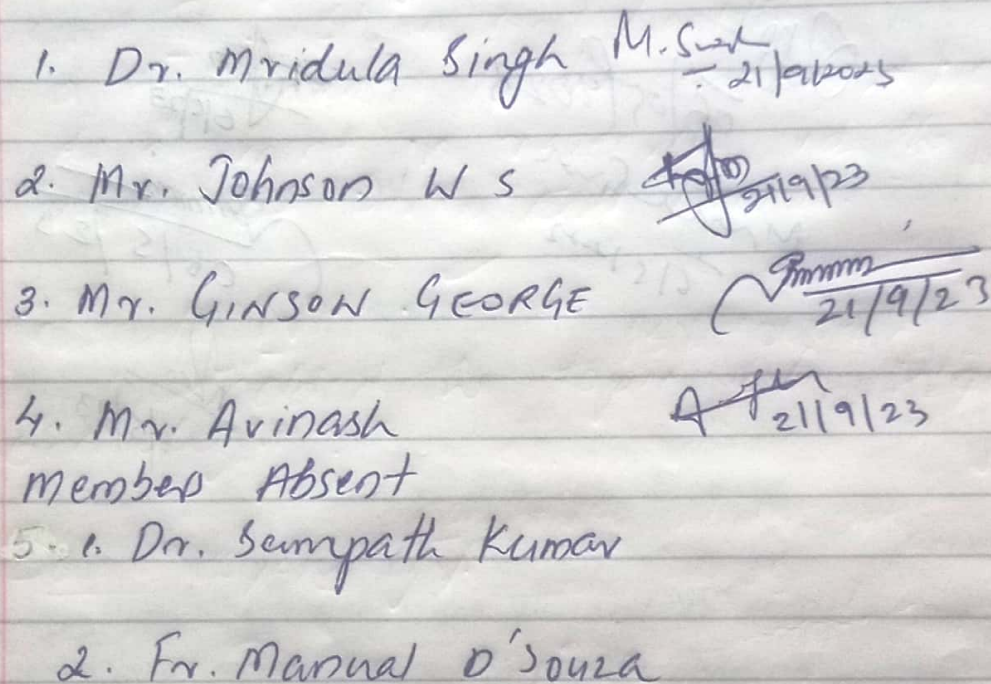 1. Dr. Mridula Singh M. 21/9/2023
2. Mr. Johnson W S 21/9/23
3. Mr. GINSON GEORGE 21/9/23
4. Mr. Avinash 21/9/23
Members Absent
5. 1. Dr. Sampath Kumar
2. Fr. Manual D'Souza